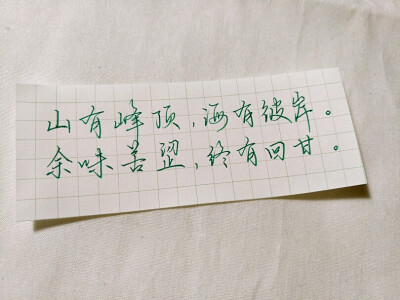 山有峰顶，海有彼岸。
余味苦涩，终有回甘。